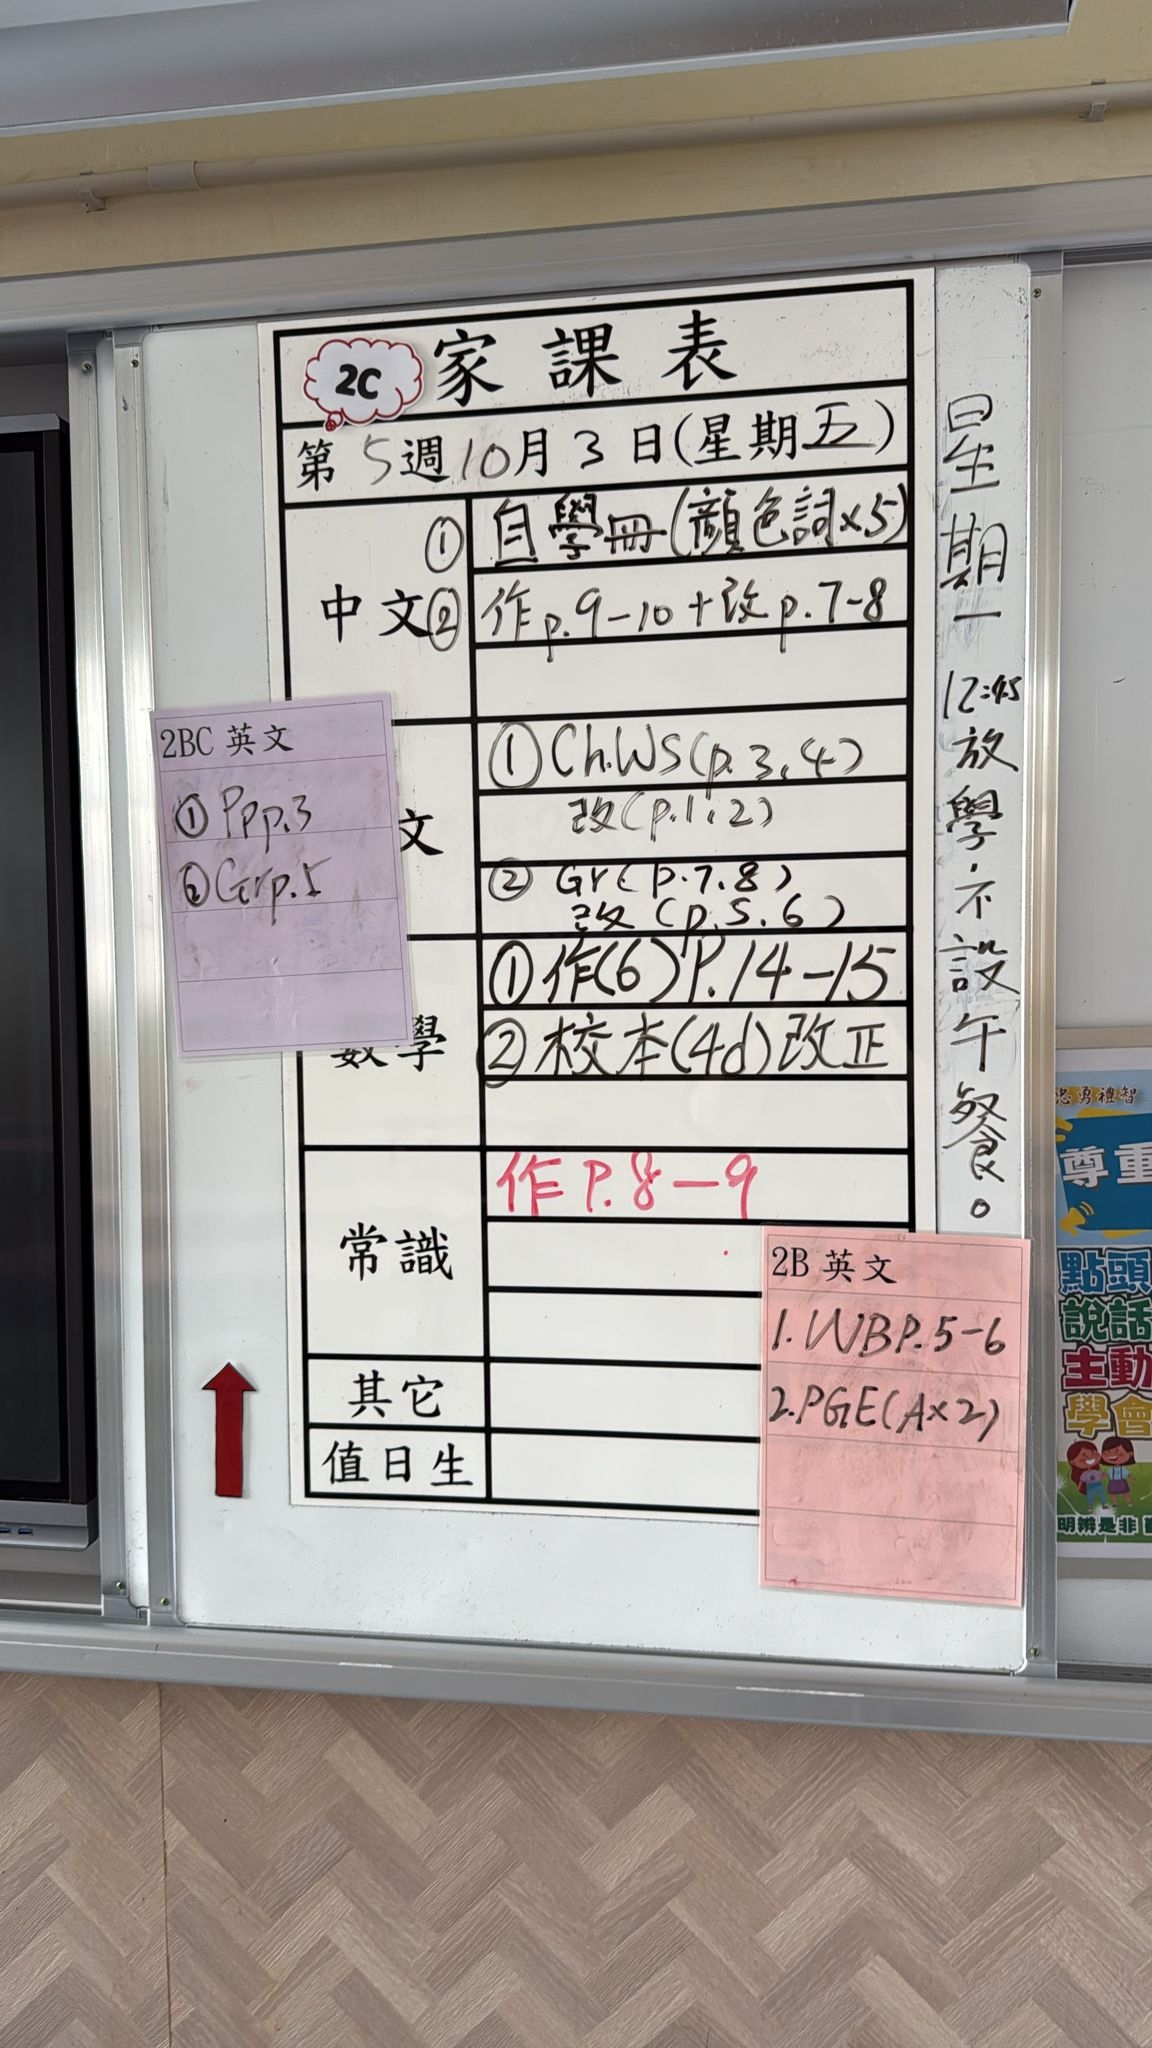 2C 家課表
第5週10月3日(星期五)
中文
① 自學冊(顏色詞x5)
② 作p.9-10+改p.7-8
文
① Ch.WS(p.3,4)
改(p.1,2)
② Gr(p.7,8)
改(p.5,6)
數學
① 作(6)P.14-15
② 校本(4d)改正
常識
作P.8-9
其它
值日生
2BC 英文
① PP p.3
② Gr p.5
2B 英文
1. WB P.5-6
2. PGE(Ax2)
星期一 12:45 放學,不設午餐。
忠勇禮智
尊重
點頭
說話
主動
學會
明辨是非